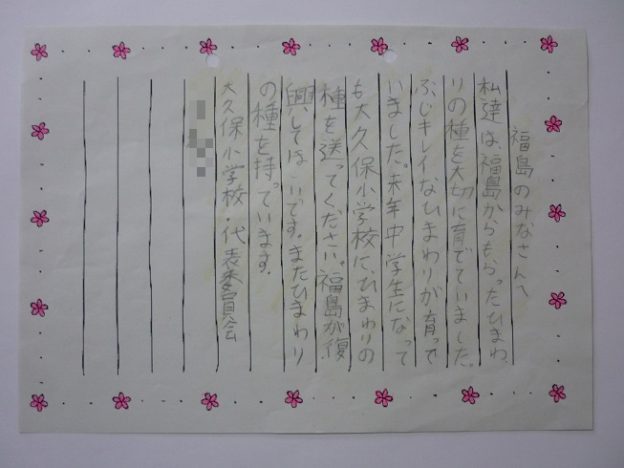 福島のみなさんへ
私達は、福島からもらったひまわ
りの種を大切に育でていました。
ぶじキレイなひまわりが育って
いました。来年中学生になって
も大久保小学校に、ひまわりの
種を送ってください。福島が復
興してほしいです。またひまわり
の種を持っています。
大久保小学校・代表委員会